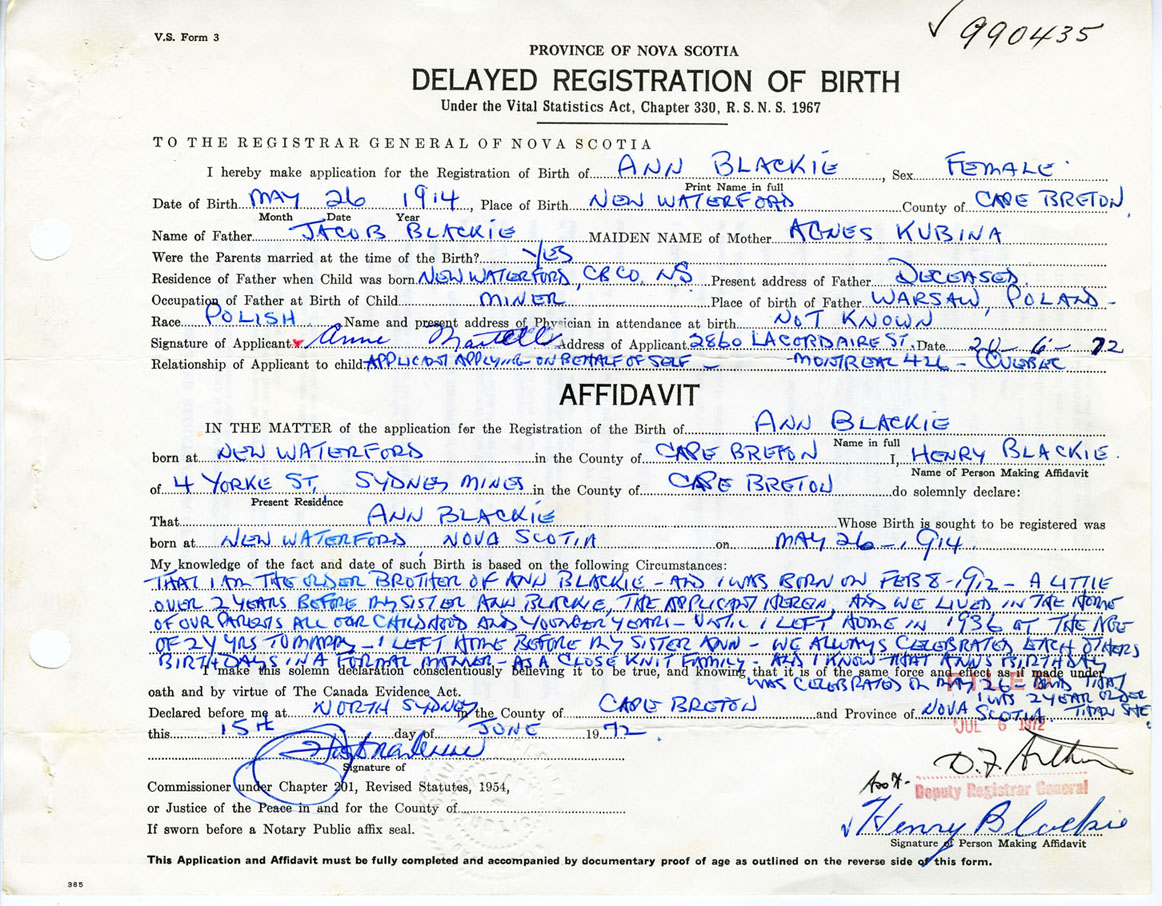 ✓ 990435
V.S. Form 3
PROVINCE OF NOVA SCOTIA
DELAYED REGISTRATION OF BIRTH
Under the Vital Statistics Act, Chapter 330, R. S. N. S. 1967
TO THE REGISTRAR GENERAL OF NOVA SCOTIA
I hereby make application for the Registration of Birth of ANN BLACKIE, Sex FEMALE
Print Name in full
Date of Birth MAY 26 1914, Place of Birth NEW WATERFORD County of CAPE BRETON
Month Date Year
Name of Father JACOB BLACKIE MAIDEN NAME of Mother AGNES KUBINA
Were the Parents married at the time of the Birth? YES
Residence of Father when Child was born NEW WATERFORD, CB CO. NS Present address of Father DECEASED
Occupation of Father at Birth of Child MINER Place of birth of Father WARSAW, POLAND -
Race POLISH Name and present address of Physician in attendance at birth NOT KNOWN
Signature of Applicant Anne Address of Applicant 2860 LACORDAIRE ST. Date 20 - 6 - 72
Relationship of Applicant to child APPLICANT APPLYING ON BEHALF OF SELF - MONTREAL 426 - QUEBEC
AFFIDAVIT
IN THE MATTER of the application for the Registration of the Birth of ANN BLACKIE
Name in full
born at NEW WATERFORD in the County of CAPE BRETON I, HENRY BLACKIE
Name of Person Making Affidavit
of 4 YORKE ST, SYDNEY MINES in the County of CAPE BRETON do solemnly declare:
Present Residence
That ANN BLACKIE Whose Birth is sought to be registered was
born at NEW WATERFORD, NOVA SCOTIA on MAY 26 - 1914
My knowledge of the fact and date of such Birth is based on the following Circumstances:
THAT I AM THE OLDER BROTHER OF ANN BLACKIE - AND I WAS BORN ON FEB 8 - 1912 - A LITTLE
OVER 2 YEARS BEFORE MY SISTER ANN BLACKIE, THE APPLICANT HEREIN, AND WE LIVED IN THE HOME
OF OUR PARENTS ALL OUR CHILDHOOD AND YOUNGER YEARS - UNTIL I LEFT HOME IN 1936 AT THE AGE
OF 24 YRS TO MARRY - I LEFT HOME BEFORE MY SISTER ANN - WE ALWAYS CELEBRATED EACH OTHERS
BIRTHDAYS IN A FORMAL MANNER - AS A CLOSE KNIT FAMILY - AND I KNOW THAT ANN'S BIRTHDAY
WAS CELEBRATED ON MAY 26 AND THAT
I WAS 2 YEAR OLDER
THAN SHE.
I make this solemn declaration conscientiously believing it to be true, and knowing that it is of the same force and effect as if made under
oath and by virtue of The Canada Evidence Act.
Declared before me at NORTH SYDNEY in the County of CAPE BRETON and Province of NOVA SCOTIA
this 15TH day of JUNE 1972
FILED
JUL 6 1972
Signature of
Commissioner under Chapter 201, Revised Statutes, 1954,
or Justice of the Peace in and for the County of
If sworn before a Notary Public affix seal.
D. F. Arthur
Ass't-
Deputy Registrar General
✓ Henry Blackie
Signature of Person Making Affidavit
This Application and Affidavit must be fully completed and accompanied by documentary proof of age as outlined on the reverse side of this form.
385